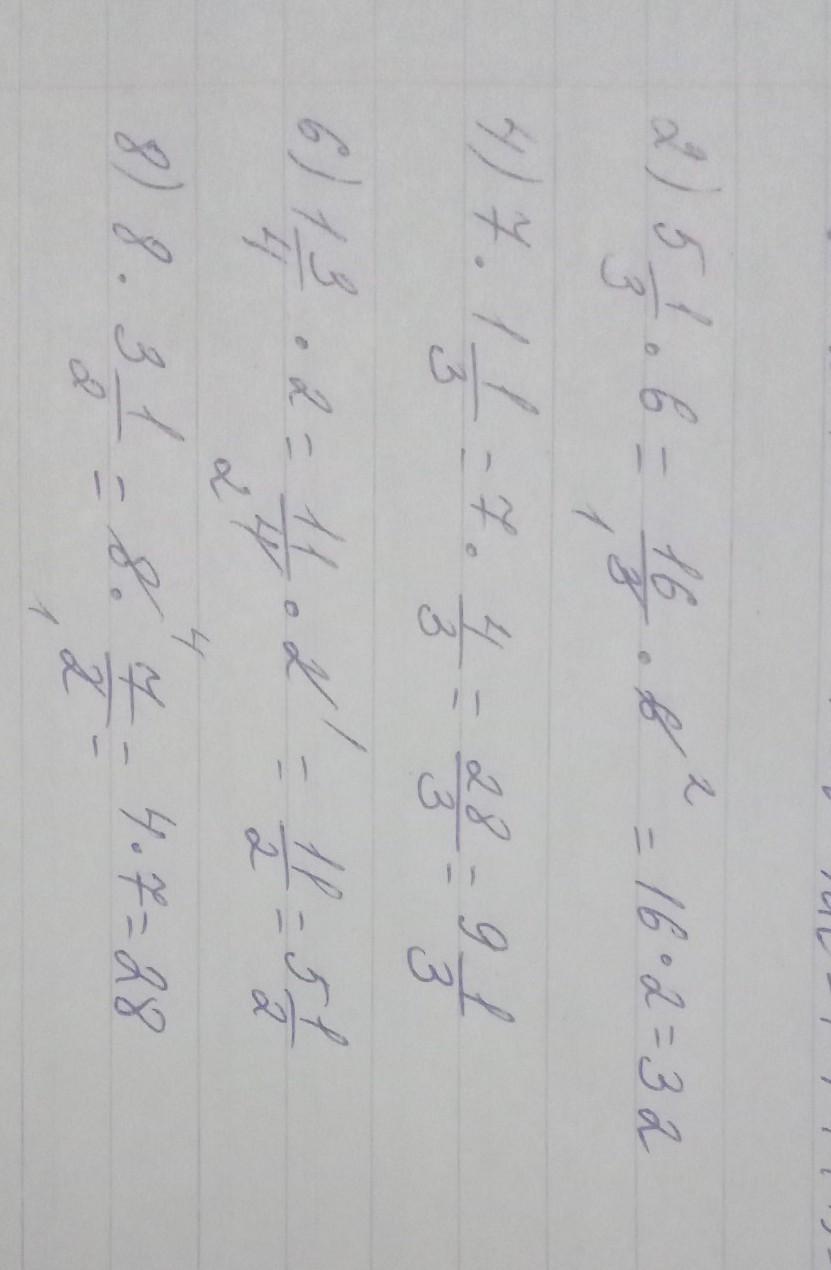 2) 5 1/3 · 6 = 16/3 · 6 = 16 · 2 = 32
4) 7 · 1 1/3 = 7 · 4/3 = 28/3 = 9 1/3
6) 1 3/4 · 2 = 11/4 · 2 = 11/2 = 5 1/2
8) 8 · 3 1/2 = 8 · 7/2 = 4 · 7 = 28